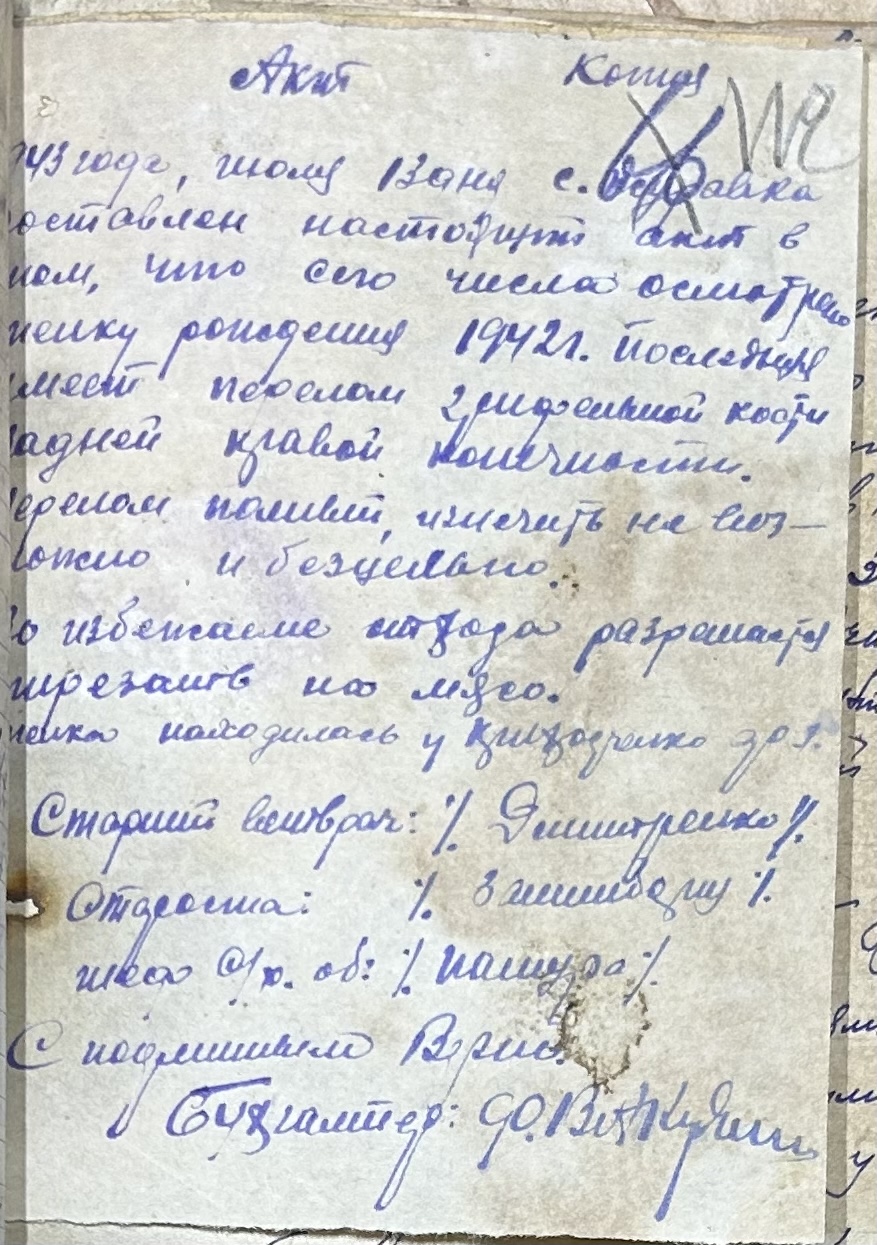 Акт Копия
№
943 года, июля 13 дня с.
составлен настоящий акт в
том, что сего числа осмотрено
телку рождения 1942 г. Последняя
имеет перелом кости
задней правой конечности.
Перелом полный, излечить не воз-
можно и безцельно.
Во избежание отхода разрешается
прирезать на мясо.
телка находилась у
Старший ветврач: /. Дмитренко /.
Староста: /. /.
шеф С/х. об: /. Пашура /.
С подлинным Верно.
Бухгалтер: